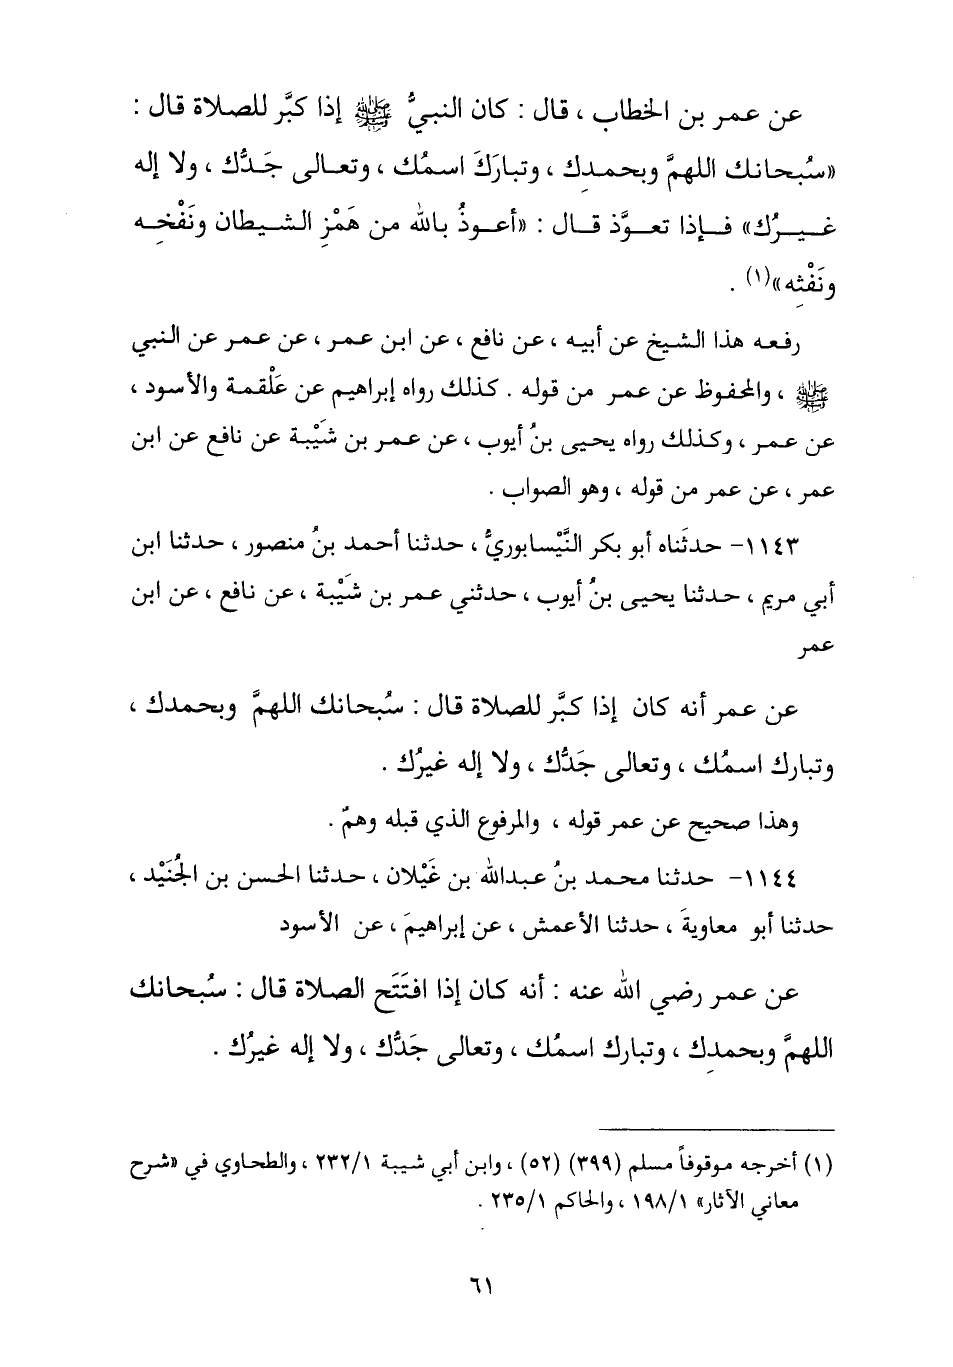 عن عمر بن الخطاب ، قال : كان النبيُّ ﷺ إذا كبَّر للصلاة قال :
«سُبحانك اللهمَّ وبحمدِك ، وتبارَكَ اسمُك ، وتعـالى جَدُّك ، ولا إله
غيرُك» فإذا تعوَّذ قال : «أعوذُ بالله من هَمْزِ الشيطان ونَفْخِه
ونَفْثِه»(١) .
رفعه هذا الشيخ عن أبيه ، عن نافع ، عن ابن عمر ، عن عمر عن النبي
ﷺ ، والمحفوظ عن عمر من قوله . كذلك رواه إبراهيم عن عَلْقمة والأسود ،
عن عمر ، وكذلك رواه يحيى بنُ أيوب ، عن عمر بن شَيْبة عن نافع عن ابن
عمر ، عن عمر من قوله ، وهو الصواب .
١١٤٣- حدثَناه أبو بكر النَّيْسابوريُّ ، حدثنا أحمد بنُ منصور ، حدثنا ابن
أبي مريم ، حدثنا يحيى بنُ أيوب ، حدثني عمر بن شَيْبة ، عن نافع ، عن ابن
عمر
عن عمر أنه كان إذا كبَّر للصلاة قال : سُبحانك اللهمَّ وبحمدك ،
وتبارك اسمُك ، وتعالى جَدُّك ، ولا إله غيرُك .
وهذا صحيح عن عمر قوله ، والمرفوع الذي قبله وهمٌ .
١١٤٤- حدثنا محمد بنُ عبدالله بن غَيْلان ، حدثنا الحسن بن الجُنَيْد ،
حدثنا أبو معاويةَ ، حدثنا الأعمش ، عن إبراهيمَ ، عن الأسود
عن عمر رضي الله عنه : أنه كان إذا افتَتَح الصلاة قال : سُبحانك
اللهمَّ وبحمدِك ، وتبارك اسمُك ، وتعالى جَدُّك ، ولا إله غيرُك .
(١) أخرجه موقوفاً مسلم (٣٩٩) (٥٢) ، وابن أبي شيبة ٢٣٢/١ ، والطحاوي في «شرح
معاني الآثار» ١٩٨/١ ، والحاكم ٢٣٥/١ .
٦١